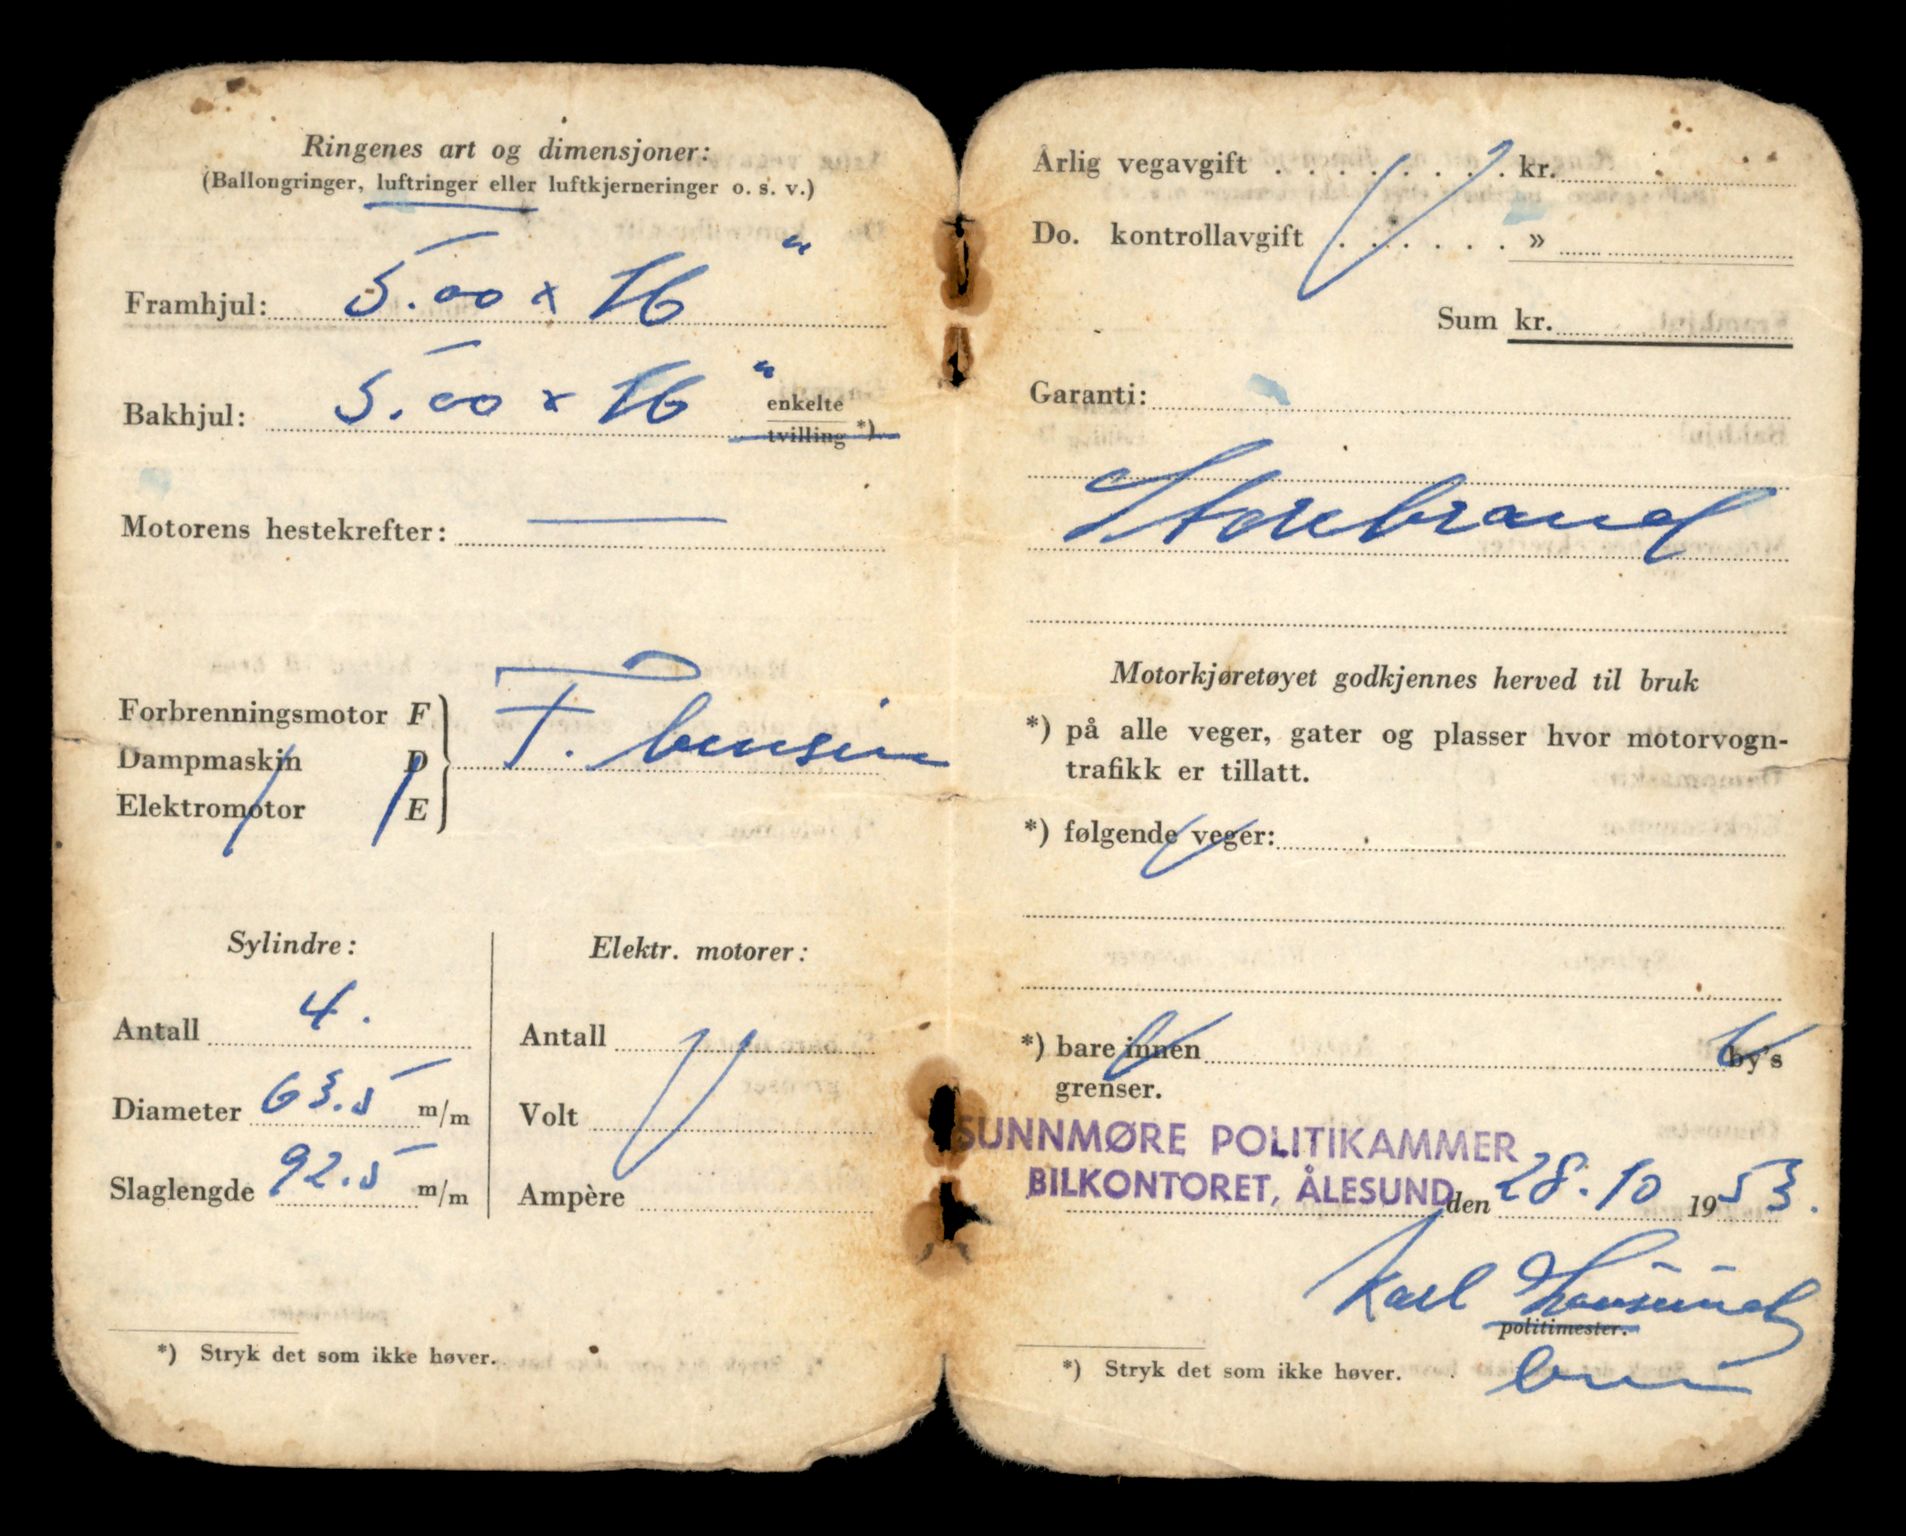 Ringenes art og dimensjoner:
(Ballongringer, luftringer eller luftkjerneringer o. s. v.)
Framhjul: 5.00 x 16 "
Bakhjul: 5.00 x 16 " enkelte
tvilling *)
Motorens hestekrefter: —
Forbrenningsmotor F
Dampmaskin D
Elektromotor E
F. bensin
Sylindre:
Antall 4.
Diameter 63.5 m/m
Slaglengde 92.5 m/m
Elektr. motorer:
Antall
Volt
Ampère
*) Stryk det som ikke høver.
Årlig vegavgift . . . . . . . . kr.
Do. kontrollavgift . . . . . . »
Sum kr.
Garanti:
Storebrand
Motorkjøretøyet godkjennes herved til bruk
*) på alle veger, gater og plasser hvor motorvogn-
trafikk er tillatt.
*) følgende veger:
*) bare innen by's
grenser.
SUNNMØRE POLITIKAMMER
BILKONTORET, ÅLESUND, den 28.10 1953.
Karl
politimester.
*) Stryk det som ikke høver.